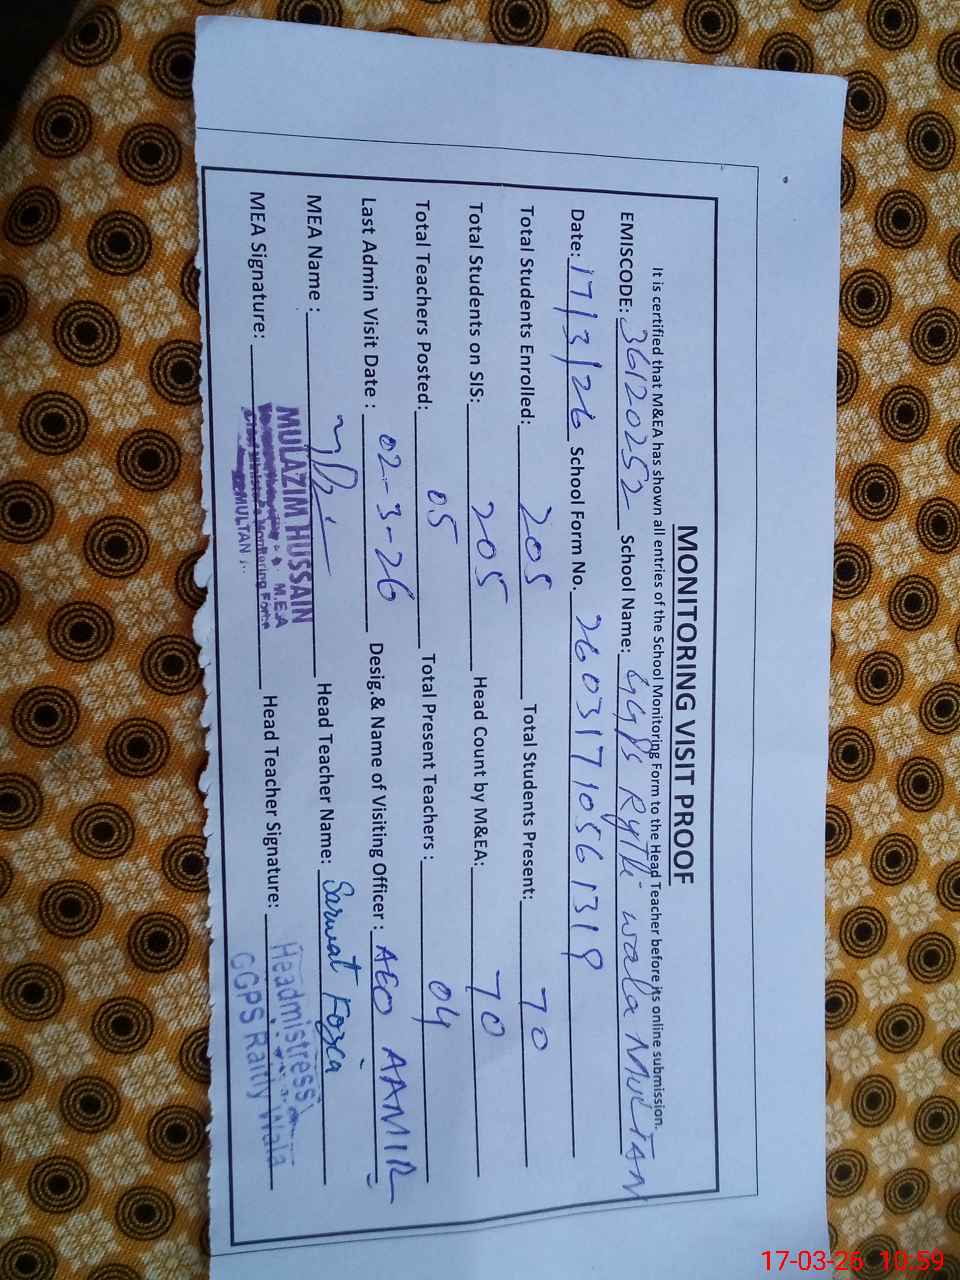 MONITORING VISIT PROOF
It is certified that M&EA has shown all entries of the School Monitoring Form to the Head Teacher before its online submission.
EMISCODE: 36120252 School Name: GGPS Rythi wala MULTAN
Date: 17/3/26 School Form No. 26031710561319
Total Students Enrolled: 205 Total Students Present: 70
Total Students on SIS: 205 Head Count by M&EA: 70
Total Teachers Posted: 05 Total Present Teachers : 04
Last Admin Visit Date : 02-3-26 Desig.& Name of Visiting Officer : AEO AAMIR
MEA Name : Head Teacher Name: Sarwat Fozia
MULAZIM HUSSAIN
M.E.A
Monitoring Force
MULTAN
MEA Signature: Head Teacher Signature:
Headmistress
GGPS Raitly Wala
17-03-26 10:59